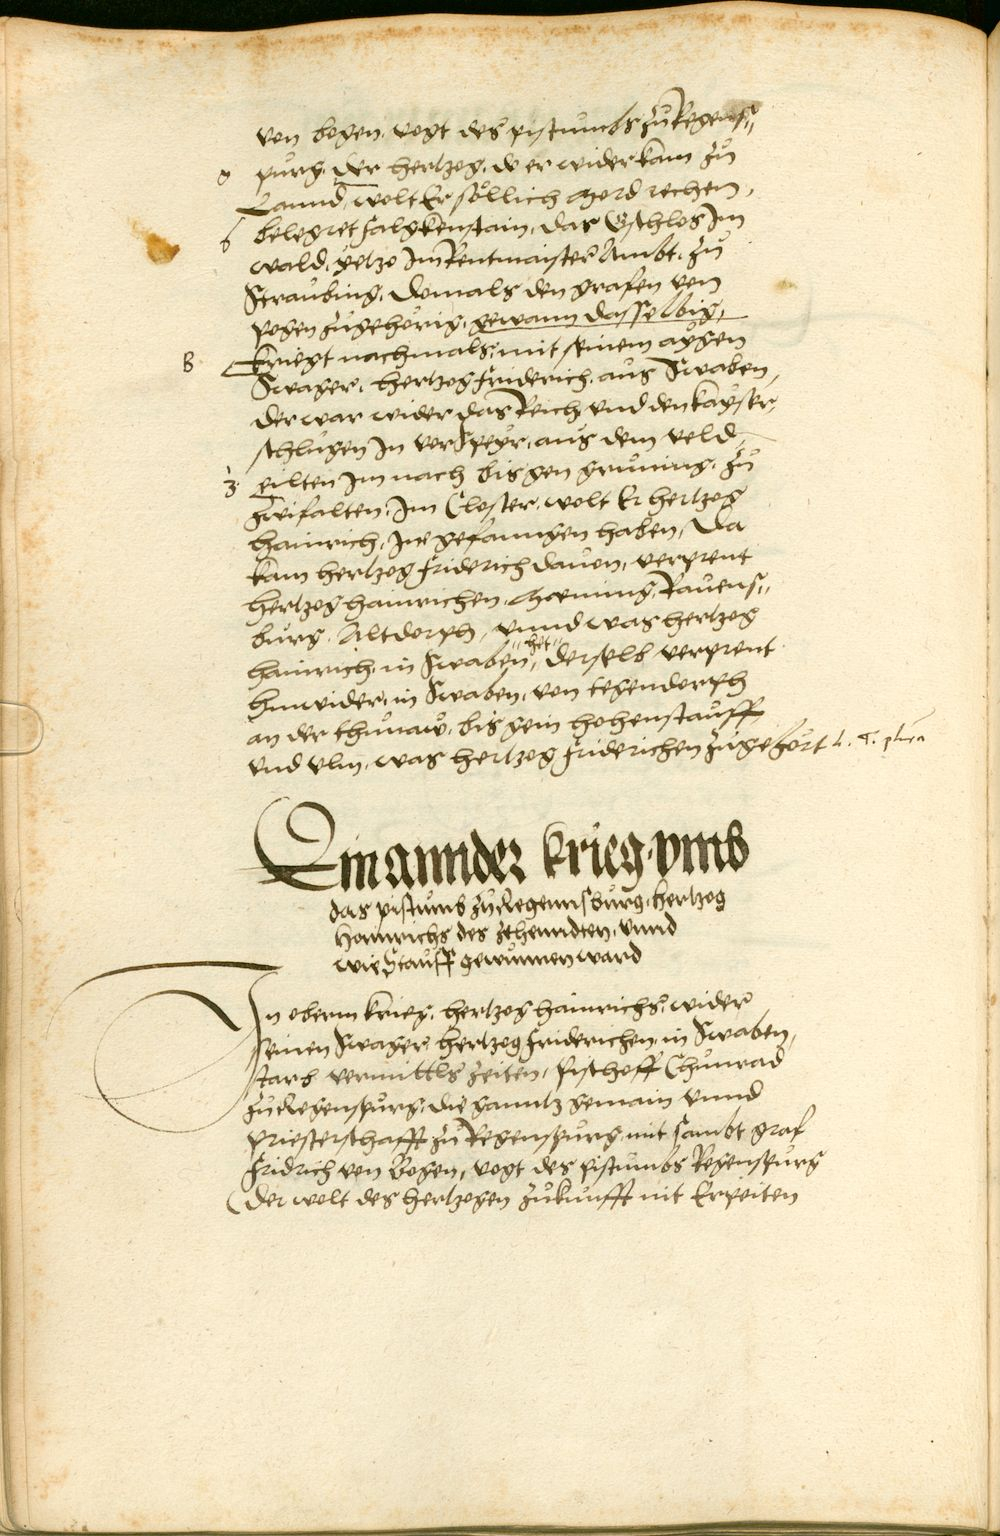 von bogen, vogt des pistumbs zu Regens„
purg. Der hertzog, do er wider kam zu
Lannd, wolt Er söllich mord rechen,
belegret Falgkenstain, das Gschlos Im
wald, yetzo Im Rentmaister Ambt, zu
Straubing, domals den grafen von
pogen zugehörig, gewann dasselbig,
kriegt nachmals, mit seinem aygen
Swager, hertzog Friderich, aus Swaben,
der war wider das Reich, vnd den kayser,
schlugen In vor Speyr, aus dem veld,
eilten Im nach bis gen gruning, zu
Zwifalten, Im Closter, wolt Er hertzog
Hainrich, Ine gefanngen haben, Da
kam hertzog Friderich dauon, verprent
hertzog hainrichen, Mening, Rauens„
burg, Altdorph, vnnd was hertzog
hainrich, in Swaben „het„ derselb verprent
hinwider, in Swaben, von tegendorph
an der thunaw, bis gein hohenstauff
vnd vlm, was hertzog Friderichen zugehört
Ein annder krieg, vmb
das pistumb zu Regennsburg, hertzog
Hainrichs des Zehenndten, vnnd
wie Stauff gewunnen ward
In oberm krieg, hertzog hainrichs, wider
seinen Swager, hertzog Friderichen, in Swaben,
starb vermittls zeiten, Pischoff Chunrad
zu Regenspurg, die ganntz gemain vnnd
priesterschafft zu Regenspurg, mit sambt graf
Fridrich von Bogen, vogt des pistumbs Regenspurg
(der wolt des hertzogen zukunfft nit Erpeiten